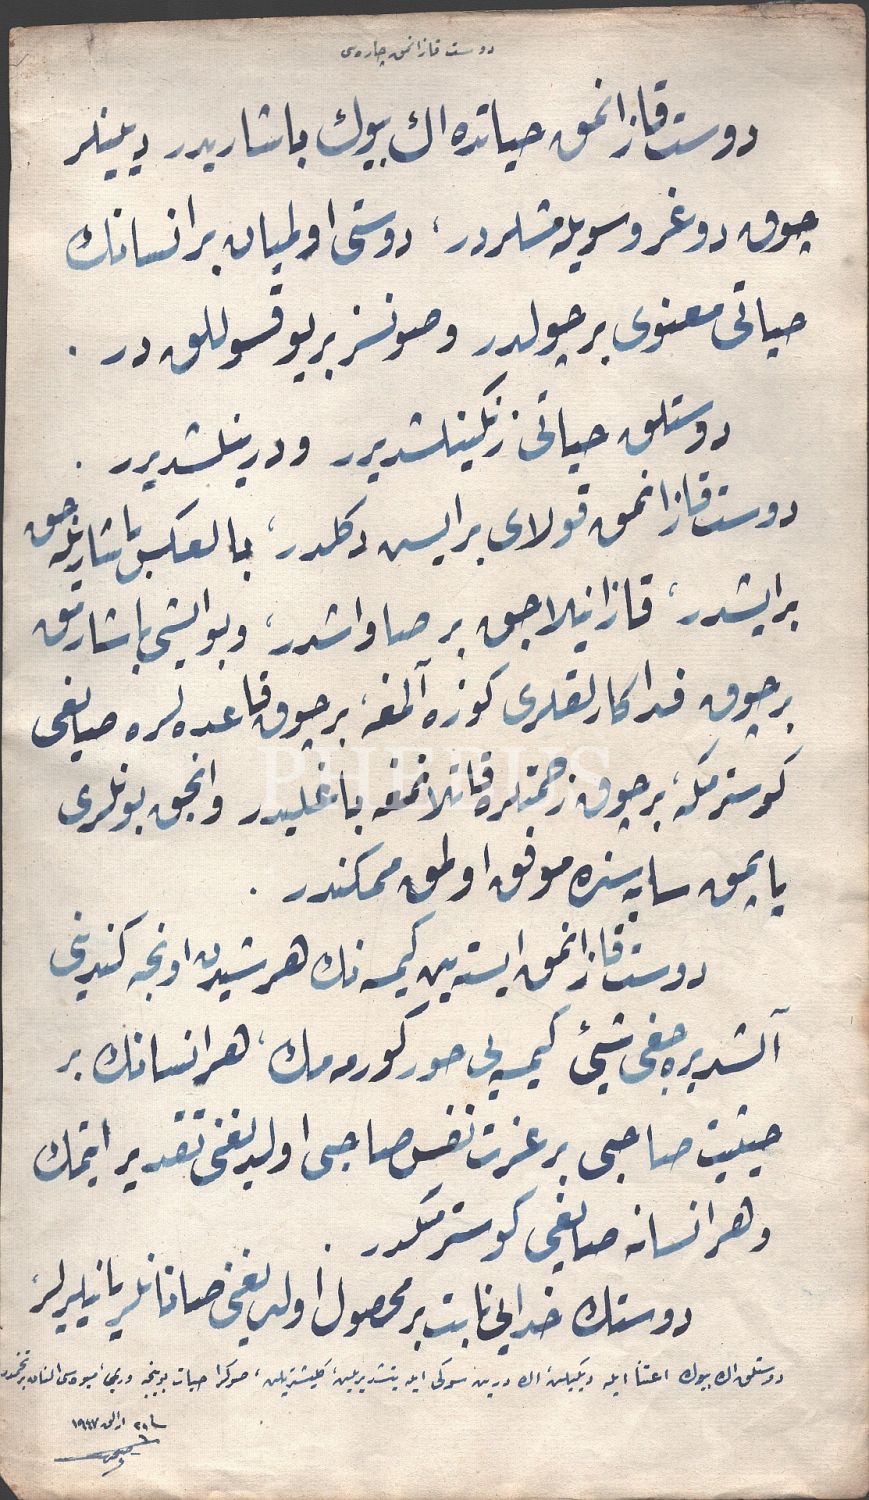 دوست قازانمق چاره‌سی
دوست قازانمق حیاتده اك بیوك باشاریدر دیینلر
چوق دوغرو سویله‌مشلردر، دوستی اولمیان بر انسانك
حیاتی معنوی بر چولدر وصوکسز بر یوقسوللق در .
دوستلق حیاتی زنگینلشدیرر ودرینلشدیرر .
دوست قازانمق قولای بر ایش دكلدر، بالعكس باشاریله‌جق
بر ایشدر، قازانیلاجق بر صاواشدر، وبو ایشی باشارمق
بر چوق فداكارلقلری كوزه آلمغه، بر چوق قاعده‌لره صایغی
كوسترمكه، بر چوق زحمتلره قاتلانمغه باغلیدر وانجق بونلری
یاپمق سایه‌سنده موفق اولمق ممكندر .
دوست قازانمق ایسته‌ین كیمسه‌نك هر شیدن اونجه كندینی
آلشدیره‌جغی شیئ كیمسه‌یی خور كورمه‌مك، هر انسانك بر
حیثیت صاحبی بر عزت نفس صاحبی اولدیغنی تقدیر ایتمك
وهر انسانه صایغی كوسترمكدر .
دوستلك خدایی نابت بر محصول اولدیغنی صانانلر یانیلیرلر،
دوستلق اك بیوك اعتنا ایله دیكیلن، اك درین سوكی ایله یتشدیریلن، كلیشدیریلن، صوكرا حیات بوینجه میوه‌سی النان بر تخمدر
PHEBUS